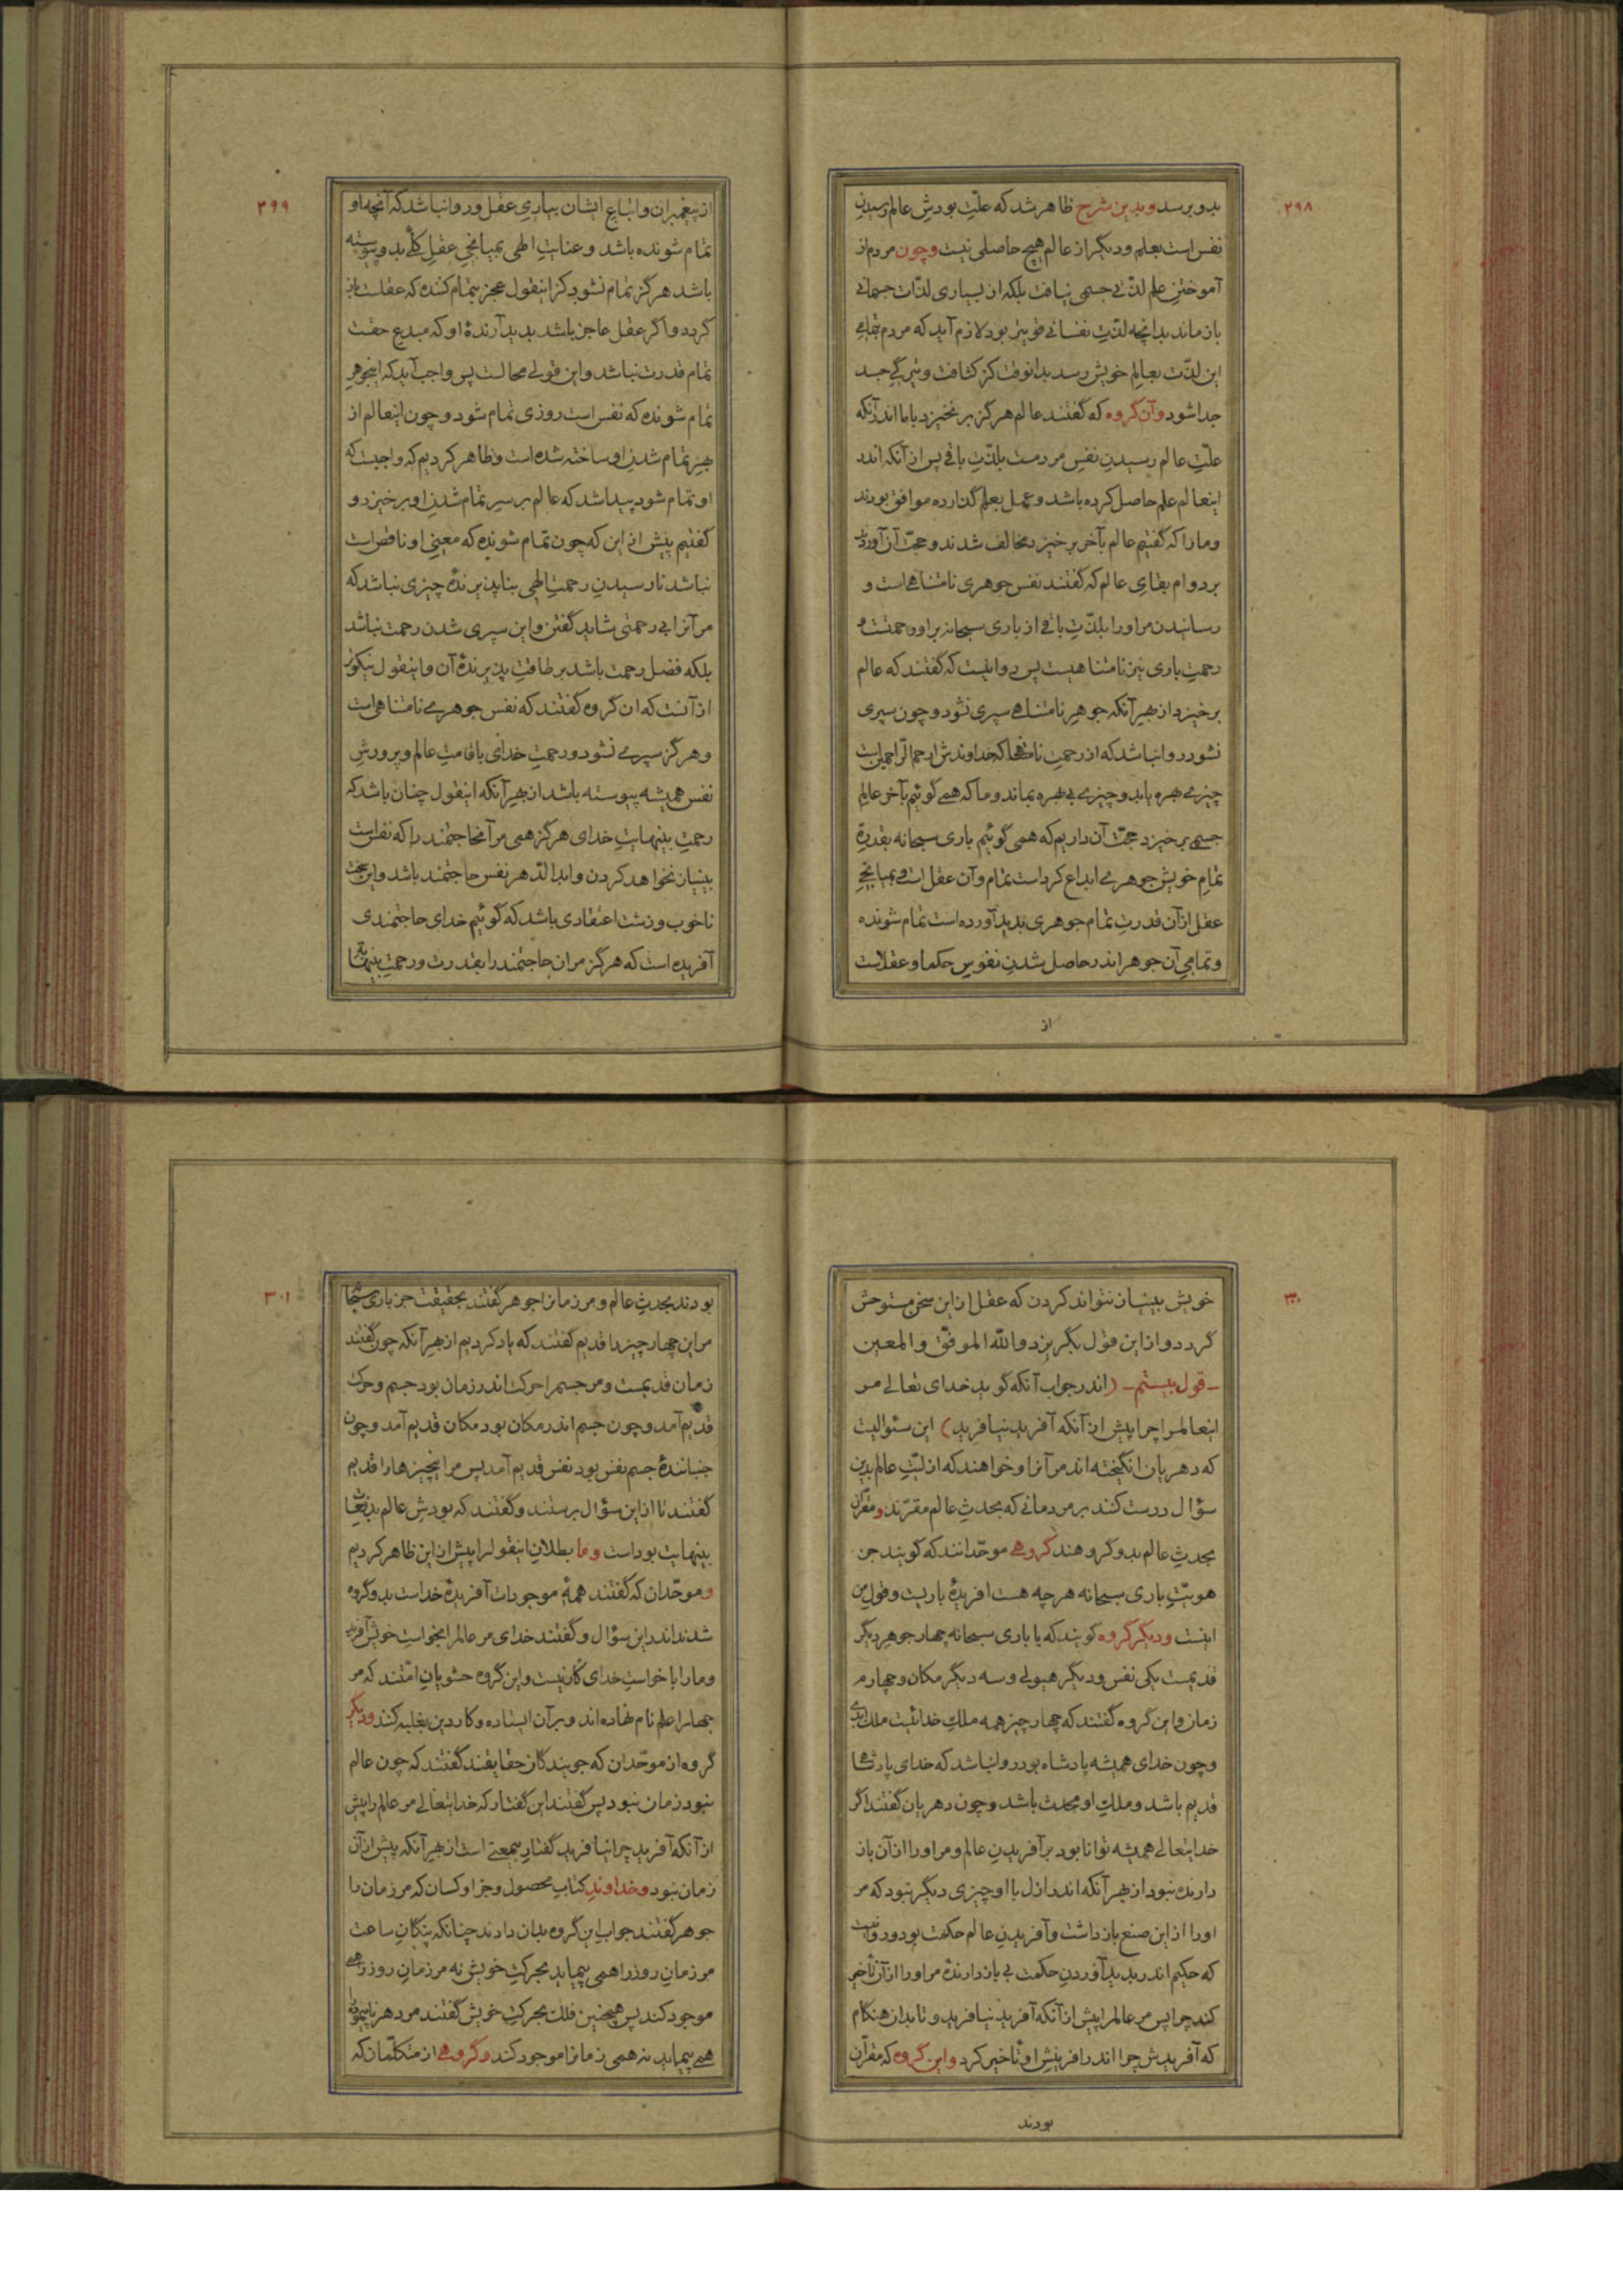 ۲۹۸
بدو برسد و بدین شرح ظاهر شد که علّتِ بودشِ عالم رسیدنِ
نفس است بعلم و دیگر از عالم هیچ حاصلی نیست و چون مردم از
آموختنِ علم لذّتی جسمی نیافت بلکه از بسیاری لذّات جسمانی
باز ماند بدانچه لذّتِ نفسانی قویتر بود لازم آید که مردم بتمامیِ
این لذّت بعالمِ خویش رسد بدانوقت کز کثافت و تیرگیِ جسد
جدا شود و آن گروه که گفتند عالم هرگز بر نخیزد با ما اندر آنکه
علّتِ عالم رسیدنِ نفسِ مردمست بلذّتِ باقی پس از آنکه اندر
اینعالم علم حاصل کرده باشد و عمل بعلم گذارده موافق بودند
و ما را که گفتیم عالم بآخر بر خیزد مخالف شدند و حجّت آن آوردند
بر دوامِ بقایِ عالم که گفتند نفس جوهری نامتناهی است و
رسانیدن مر اورا بلذّتِ باقی از باری سبحانه بر او رحمتست و
رحمتِ باری نیز نامتناهیست پس روا نیست که گفتند که عالم
بر خیزد از بهر آنکه جوهرِ نامتناهی سپری نشود و چون سپری
نشود روا نباشد که از رحمتِ نامتناهی که خداوندش ارحم الرّاحمین است
چیزی بهره یابد و چیزی بی بهره بماند و ما که همی گوئیم بآخر عالمِ
جسمی بر خیزد حجّت آن داریم که همی گوئیم باری سبحانه بقدرةِ
تمامِ خویش جوهری ابداع کرد است تمام و آن عقل است و بمیانجیِ
عقل از آن قدرتِ تمام جوهری پدید آورده است تمام شونده
و تمامیِ آن جوهر اندر حاصل شدنِ نفوسِ حکما و عقلاست
از
۲۹۹
از پیغمبران و اتباعِ ایشان بیاریِ عقل و روا نباشد که آنچه او
تمام شونده باشد و عنایتِ الهی بمیانجیِ عقلِ کلّی بدو پیوسته
باشد هرگز تمام نشود کز اینقول عجز بتمام کننده که عقلست باز
گردد و اگر عقل عاجز باشد پدید آرندهٔ او که مبدعِ حقست
تمام قدرت نباشد و این قولی محالست پس واجب آید که اینجوهرِ
تمام شونده که نفس است روزی تمام شود و چون اینعالم از
بهرِ تمام شدنِ او ساخته شده است و ظاهر کردیم که واجبست که
او تمام شود پیدا شد که عالم بر سرِ تمام شدنِ او بر خیزد و
گفتیم پیش از این که چون تمام شونده که معنیِ او ناقص است
نباشد نا رسیدنِ رحمتِ الهی بناپذیرندهٔ چیزی نباشد که
مر آنرا بی رحمتی شاید گفتن و این سپری شدن رحمت نباشد
بلکه فضل رحمت باشد بر طاقتِ پذیرندهٔ آن و اینقول نیکوتر
از آنست که آن گروه گفتند که نفس جوهری نامتناهی است
و هرگز سپری نشود و رحمتِ خدای باقامتِ عالم و پرورشِ
نفس همیشه پیوسته باشد از بهر آنکه اینقول چنان باشد که
رحمتِ بینهایتِ خدای هرگز همی مر آن محاجتمند را که نفس است
بینیاز نخواهد کردن و ابدالدّهر نفس حاجتمند باشد و این سخت
ناخوب و زشت اعتقادی باشد که گوئیم خدای حاجتمندی
آفریده است که هرگز مر آن حاجتمند را بقدرت و رحمتِ بینهایة
۳۰۰
خویش بینیاز نتواند کردن که عقل از این سخن مستوحش
گردد و از این قول بگریزد و اللّه الموفّق و المعین
ـ قول بیستم ـ (اندر جواب آنکه گوید خدای تعالی مر
اینعالمرا چرا پیش از آنکه آفرید نیافرید) این سئوالیست
که دهریان انگیخته اند مر آنرا و خواهند که ازلیّتِ عالم بدین
سؤال درست کنند بر مردمانی که بحدثِ عالم مقرّند و مقرّان
بحدثِ عالم بدو گروهند گروهی موحّدانند که گویند جز
هویّتِ باری سبحانه هرچه هست آفریدهٔ باریست و قولِ من
اینست و دیگر گروه گویند که با باری سبحانه چهار جوهر دیگر
قدیمست یکی نفس و دیگر هیولی و سه دیگر مکان و چهارم
زمان و این گروه گفتند که چهار چیز همه ملکِ خدائیست ملک ابدی
و چون خدای همیشه پادشاه بود روا نباشد که خدای پادشاهی
قدیم باشد و ملکِ او محدث باشد و چون دهریان گفتند اگر
خدایتعالی همیشه توانا بود بر آفریدنِ عالم و مر اورا از آن باز
دارنده نبود از بهر آنکه اندر ازل با او چیزی دیگر نبود که مر
اورا از این صنع باز داشت و آفریدنِ عالم حکمت بود و روا نیست
که حکیم اندر پدید آوردنِ حکمت بی باز دارندهٔ مر اورا از آن تأخیر
کند چرا پس مر عالمرا پیش از آنکه آفرید نیافرید و تا بدان هنگام
که آفریدش چرا اندر آفرینشِ او تأخیر کرد و این گروه که مقرّان
بودند
۳۰۱
بودند بحدثِ عالم و مر زمانرا جوهر گفتند بحقیقت جز باری سبحانه
مر این چهار چیز را قدیم گفتند که یاد کردیم از بهر آنکه چون گفتند
زمان قدیمست و مر جسمرا حرکت اندر زمان بود جسم و حرکت
قدیم آمد و چون جسم اندر مکان بود مکان قدیم آمد و چون
جنبانندهٔ جسم نفس بود نفس قدیم آمد پس مر اینچیزها را قدیم
گفتند تا از این سؤال برستند و گفتند که بودشِ عالم بدفعات
بینهایت بود است و ما بطلانِ اینقول را پیش از این ظاهر کردیم
و موحّدان که گفتند همهٔ موجودات آفریدهٔ خداست بدو گروه
شدند اندر این سؤال و گفتند خدای مر عالمرا بخواستِ خویش آفرید
و ما را با خواستِ خدای کار نیست و این گروه حشویانِ امّتند که مر
جهلرا علم نام نهاده اند و بر آن ایستاده و کار دین بغلبه کنند و دیگر
گروه از موحّدان که جویندگانِ حقایقند گفتند که چون عالم
نبود زمان نبود پس گفتند این گفتار که خدایتعالی مر عالم را پیش
از آنکه آفرید چرا نیافرید گفتارِ بیمعنی است از بهر آنکه پیش از آن
زمان نبود و خداوندِ کتابِ محصول و جز او کسان که مر زمان را
جوهر گفتند جوابِ این گروه بدان دادند چنانکه پنگانِ ساعت
مر زمانِ روز را همی پیماید بحرکتِ خویش نه مر زمانِ روز را همی
موجود کند پس همچنین فلک بحرکتِ خویش گفتند مر دهر ناپیموده
همی پیماید نه همی زمانرا موجود کند و گروهی از متکلّمان که